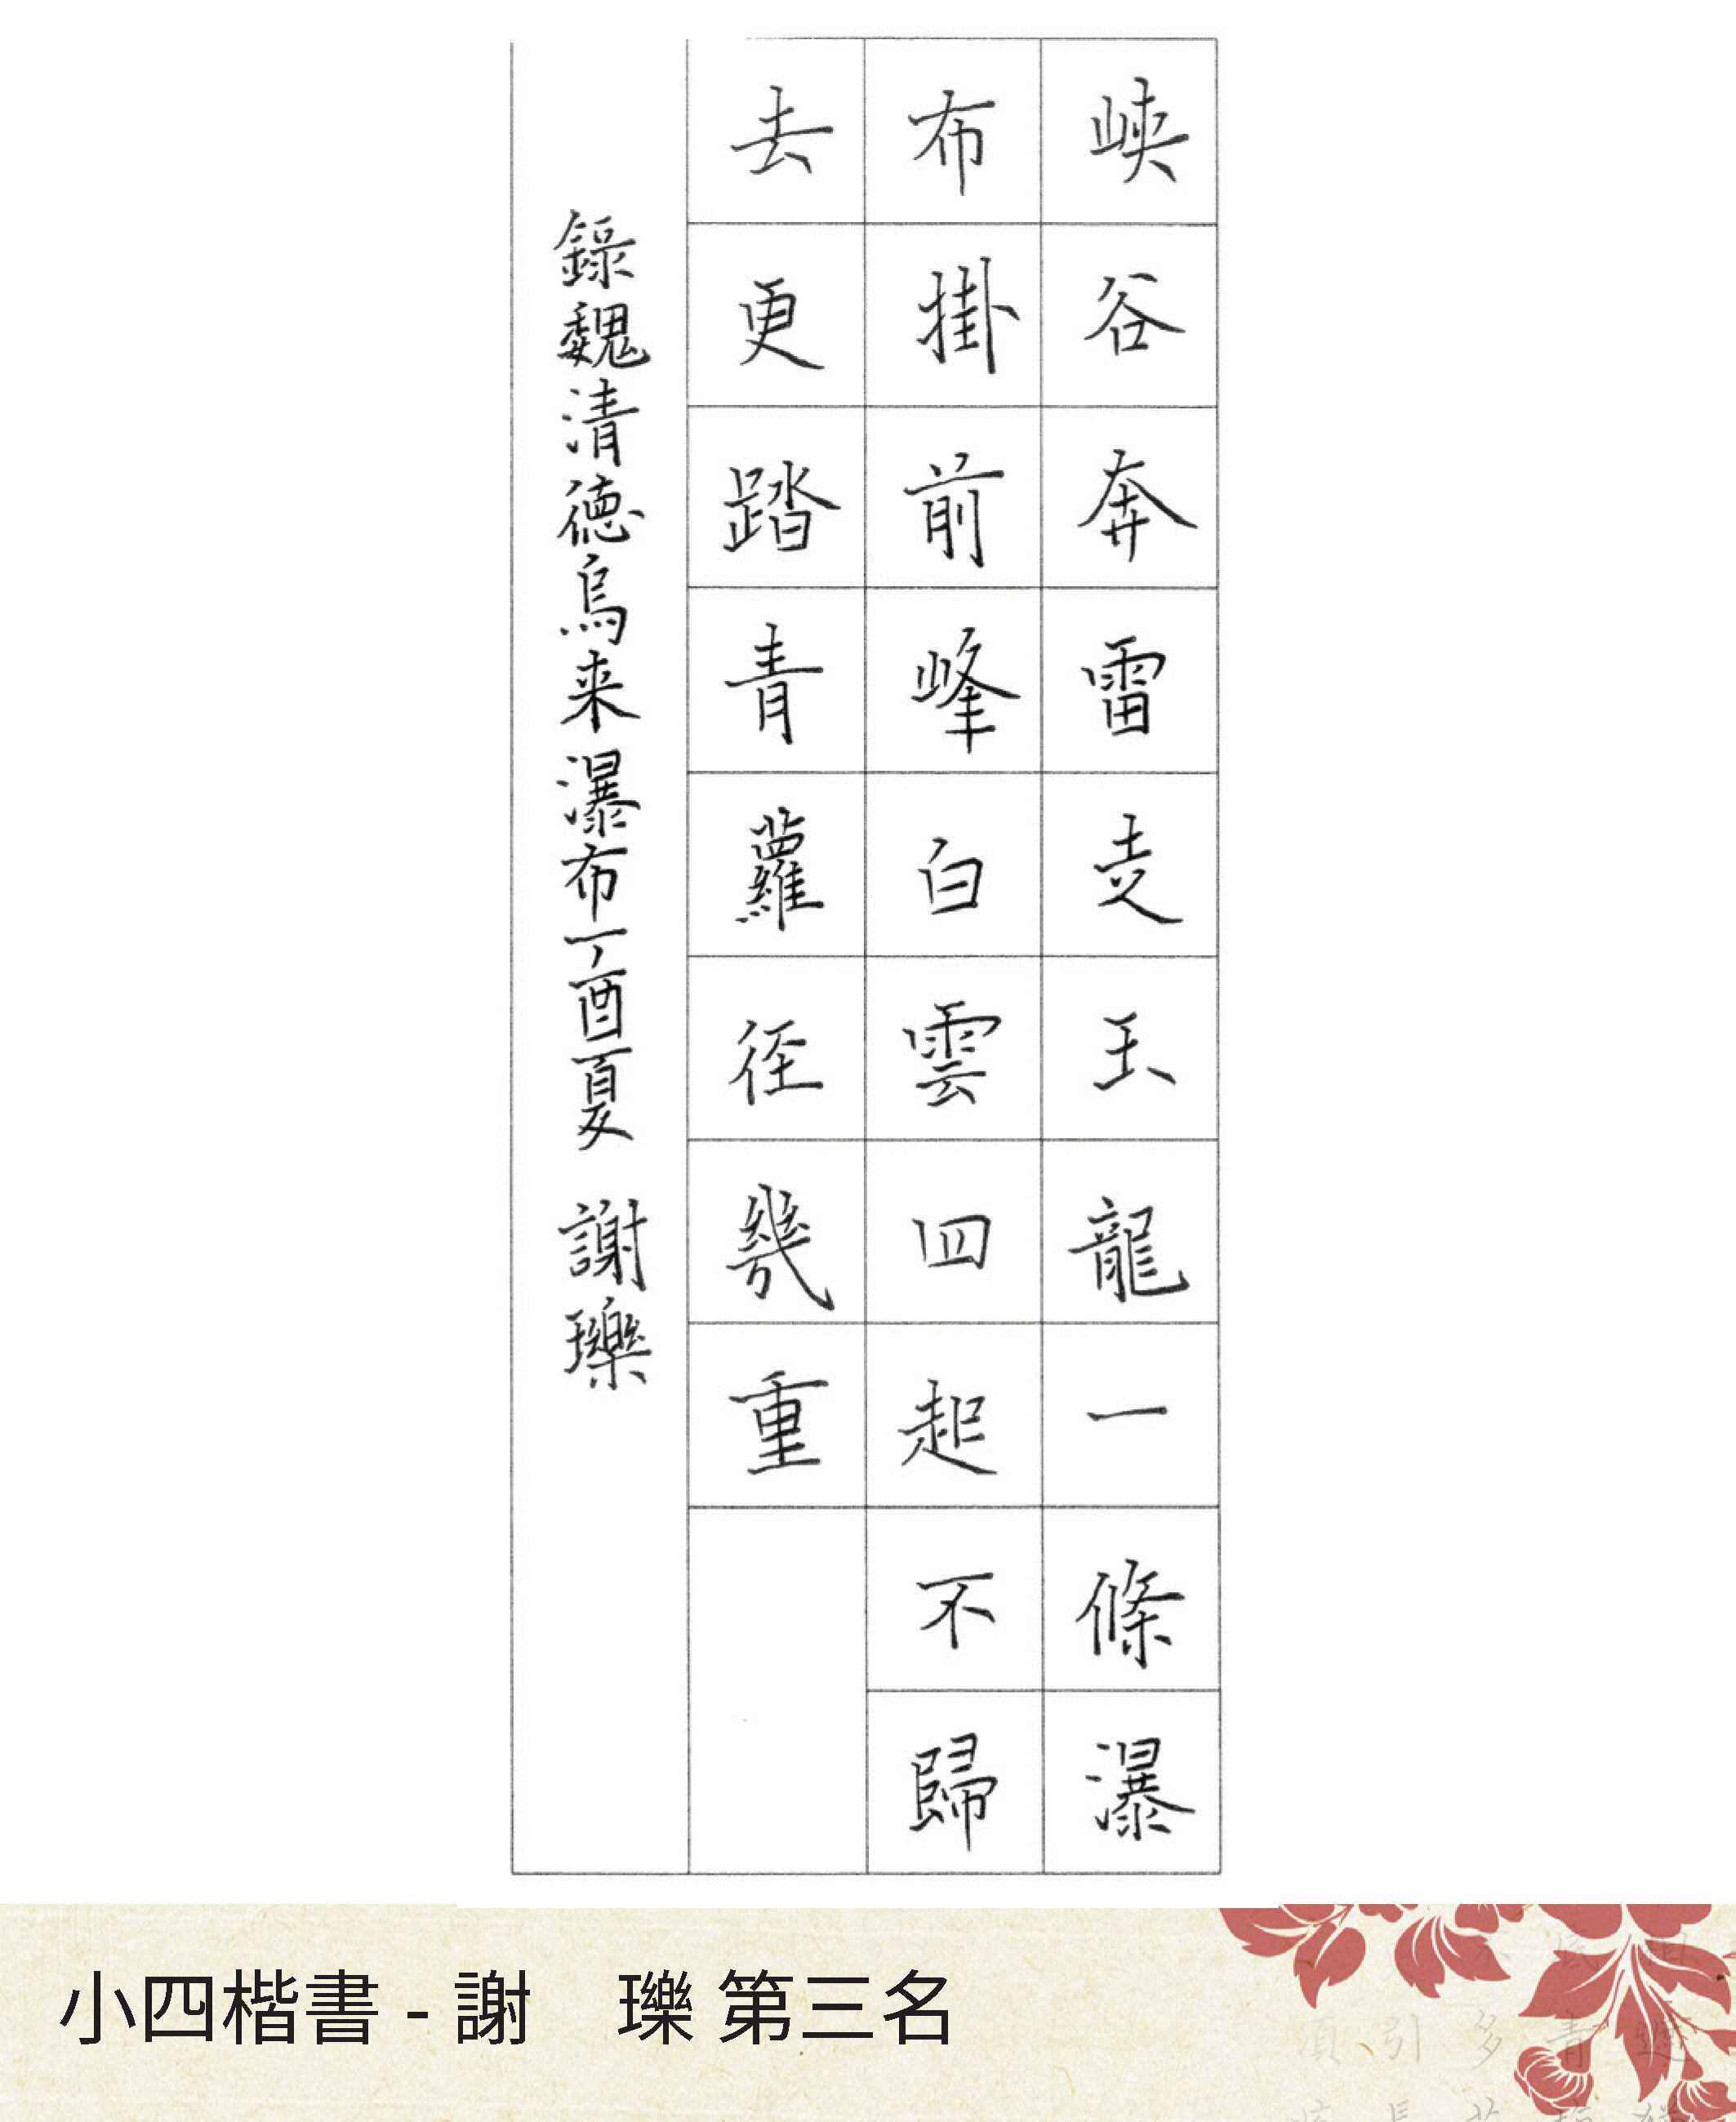 峽谷奔雷走玉龍一條瀑
布掛前峰白雲四起不歸
去更踏青蘿徑幾重
錄魏清德烏来瀑布丁酉夏 謝瓅
小四楷書 - 謝　瓅 第三名